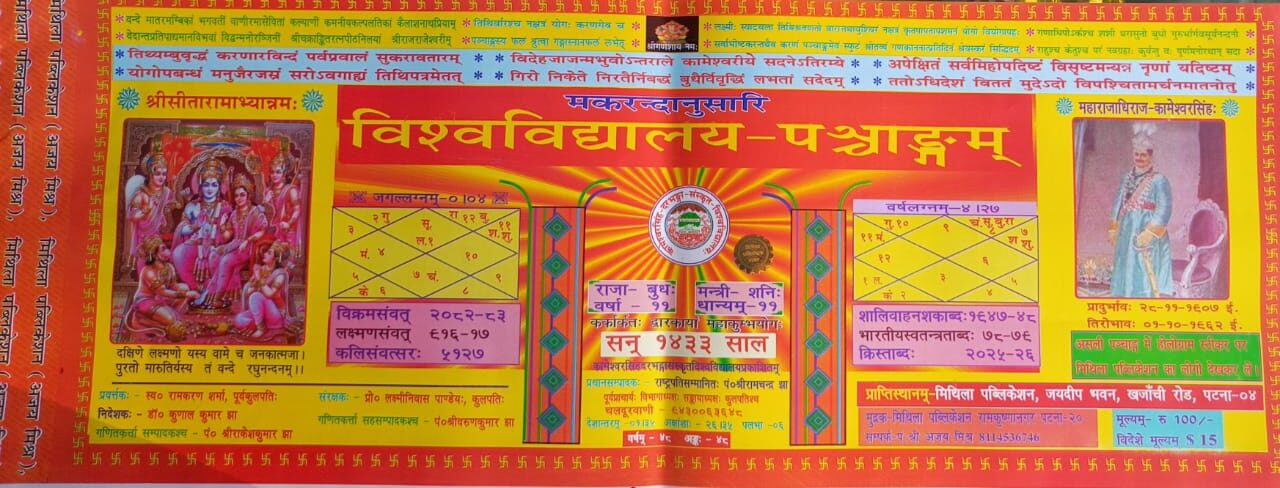 श्रीगणेशाय नमः
तिथ्यम्बुवृद्धं करणारविन्दं पर्वप्रवालं सुकरावतारम्
विदेहजाजन्मभुवोऽन्तराले कामेश्वरीये सदनेऽतिरम्ये
अपेक्षितं सर्वमिहोपदिष्टं विसृष्टमन्यन्न नृणां यदिष्टम्
योगोपबन्धं मनुजैरजस्रं सरोऽवगाह्यं तिथिपत्रमेतत्
गिरो निकेते निरतैर्निबद्धं बुधैर्विवृद्धिं लभतां सदेदम्
ततोऽधिदेशं विततं मुदेऽदो विपश्चितामर्चनमातनोतु
श्रीसीतारामाभ्यान्नमः
मकरन्दानुसारि
विश्वविद्यालय-पञ्चाङ्गम्
महाराजाधिराज-कामेश्वरसिंहः
जगल्लग्नम्-०।०४
वर्षलग्नम्-४।२७
राजा- बुधः
मन्त्री- शनिः
वर्षा - ११
धान्यम्-११
कर्कार्कतः द्वारकायां महाकुम्भयोगः
सन् १४३३ साल
विक्रमसंवत् २०८२-८३
लक्ष्मणसंवत् ९१६-१७
कलिसंवत्सरः ५१२७
शालिवाहनशकाब्दः १९४७-४८
भारतीयस्वतन्त्रताब्दः ७८-७९
क्रिस्ताब्दः २०२५-२६
प्रादुर्भावः २८-११-१९०७ ई.
तिरोभावः ०१-१०-१९६२ ई.
असली पञ्चाङ्ग में होलोग्राम स्टीकर पर
मिथिला पब्लिकेशन का लोगो देखकर लें।
दक्षिणे लक्ष्मणो यस्य वामे च जनकात्मजा।
पुरतो मारुतिर्यस्य तं वन्दे रघुनन्दनम्।।
कामेश्वरसिंहदरभङ्गासंस्कृतविश्वविद्यालयप्रकाशितम्
प्रधानसम्पादकः - राष्ट्रपतिसम्मानितः पं०श्रीरामचन्द्र झा
चलदूरवाणी - ९४३००६३६४८
देशान्तरम् -०।१३५ अक्षांशाः - २६।३५ पलभा -०६
वर्षम् - ४८ अङ्कः - ४८
प्रवर्त्तकः - स्व० रामकरण शर्मा, पूर्वकुलपतिः
संरक्षकः - प्रो० लक्ष्मीनिवास पाण्डेयः, कुलपतिः
निदेशकः - डॉ० कुणाल कुमार झा
गणितकर्त्ता सहसम्पादकश्च - पं०श्रीवरुणकुमार झा
गणितकर्त्ता सम्पादकश्च - पं० श्रीराकेशकुमार झा
प्राप्तिस्थानम्-मिथिला पब्लिकेशन, जयदीप भवन, खजाँची रोड, पटना-०४
मुद्रक-मिथिला पब्लिकेशन रामकृष्णानगर पटना-२०
सम्पर्क-पं श्री अजय मिश्र 8114536746
मूल्यम्- रु 100/-
विदेशे मूल्यम् $ 15
मिथिला पब्लिकेशन (अजय मिश्रा).